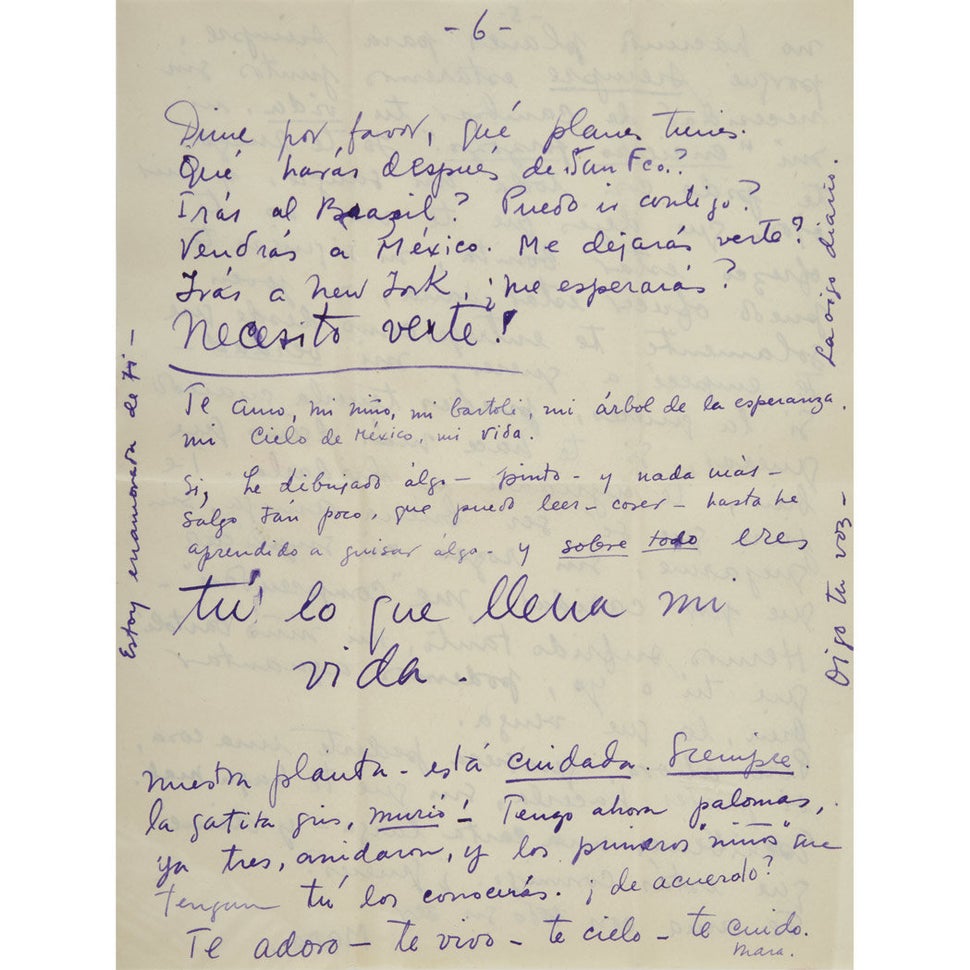 - 6 -
Dime por favor, qué planes tienes.
Qué harás después de San Fco.?
Irás al Brazil? Puedo ir contigo?
Vendrás a México. Me dejarás verte?
Irás a New York, ¿me esperarás?
Necesito verte!
Te amo, mi niño, mi bartoli, mi árbol de la esperanza.
mi cielo de México, mi vida.
Si, he dibujado álgo - pinto - y nada más -
Salgo tan poco, que puedo leer - coser - hasta he
aprendido a guisar álgo - y sobre todo eres
tú lo que llena mi
vida.
nuestra planta - está cuidada. Siempre.
la gatita gris, murió! Tengo ahora palomas,
ya tres, anidaron, y los primeros "niños" que
tengan tú los conocerás. ¿de acuerdo?
Te adoro - te vivo - te cielo - te cuido.
Mara.
Estoy enamorada de ti -
Oigo tu voz - La oigo diario.